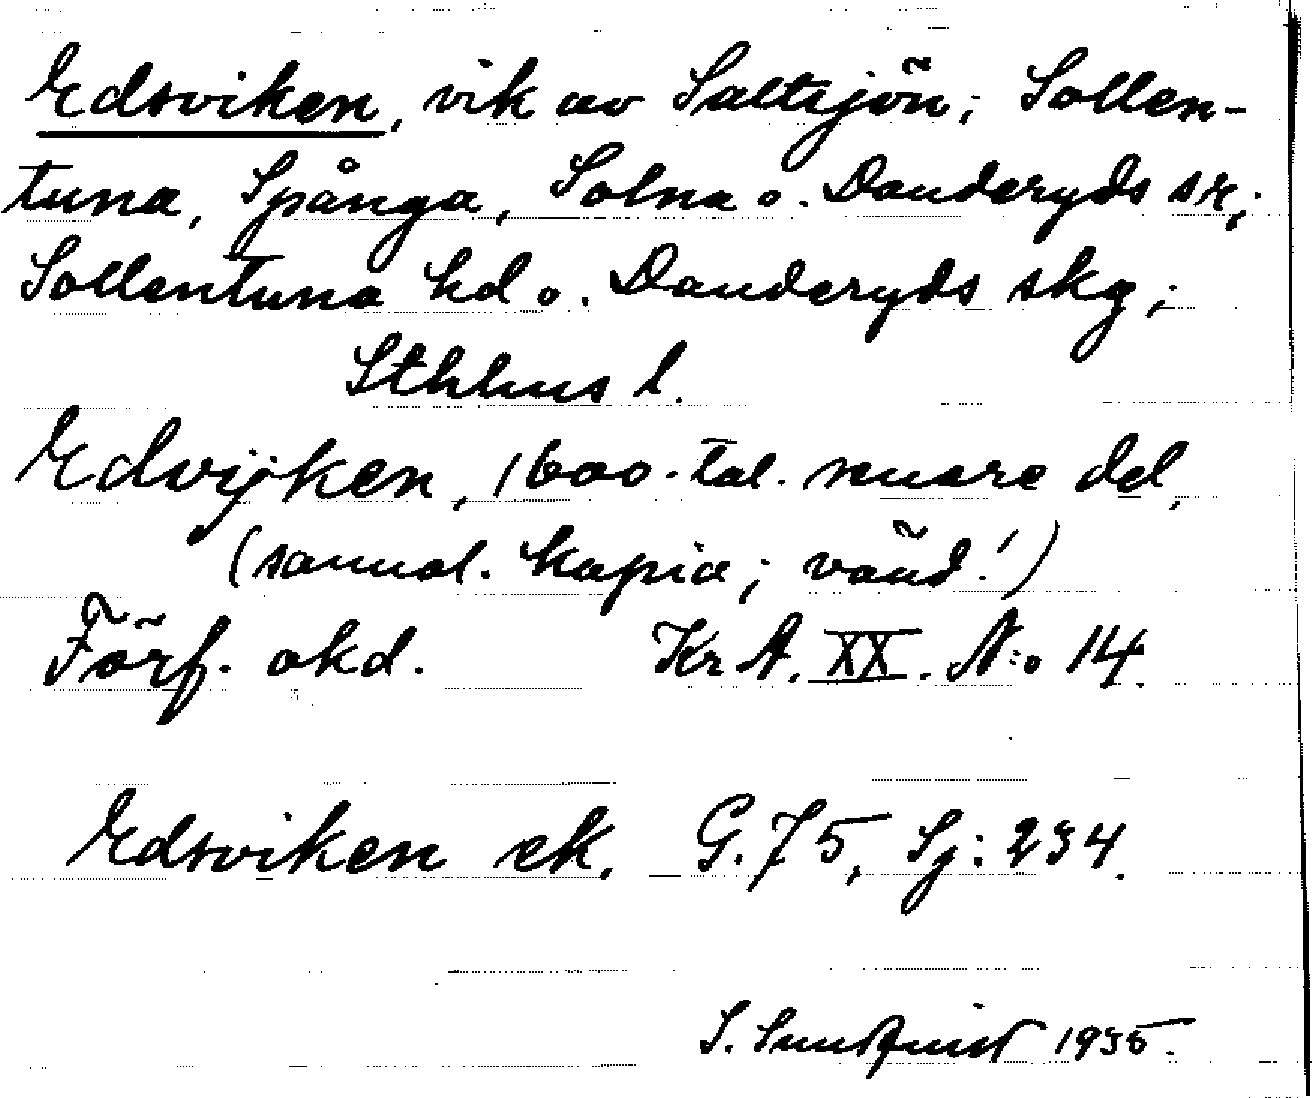 Edsviken, vik av Saltsjön; Sollen-
tuna, Spånga, Solna o. Danderyds sr,;
Sollentuna hd o. Danderyds skg;
Sthlms l.
Edvijken, 1600-tal. senare del,
(samal. kopia; vänd!)
Förf. okd. KrA. XX. N:o 14.
Edsviken ek. G.75, Sj: 234.
S. Sundquist 1935.